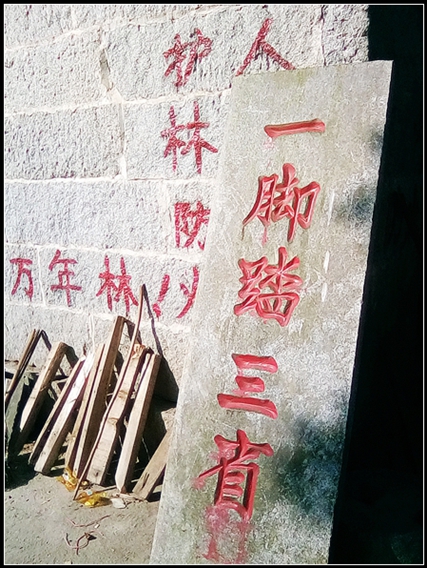 一脚踏三省
护林防火
人
万年林